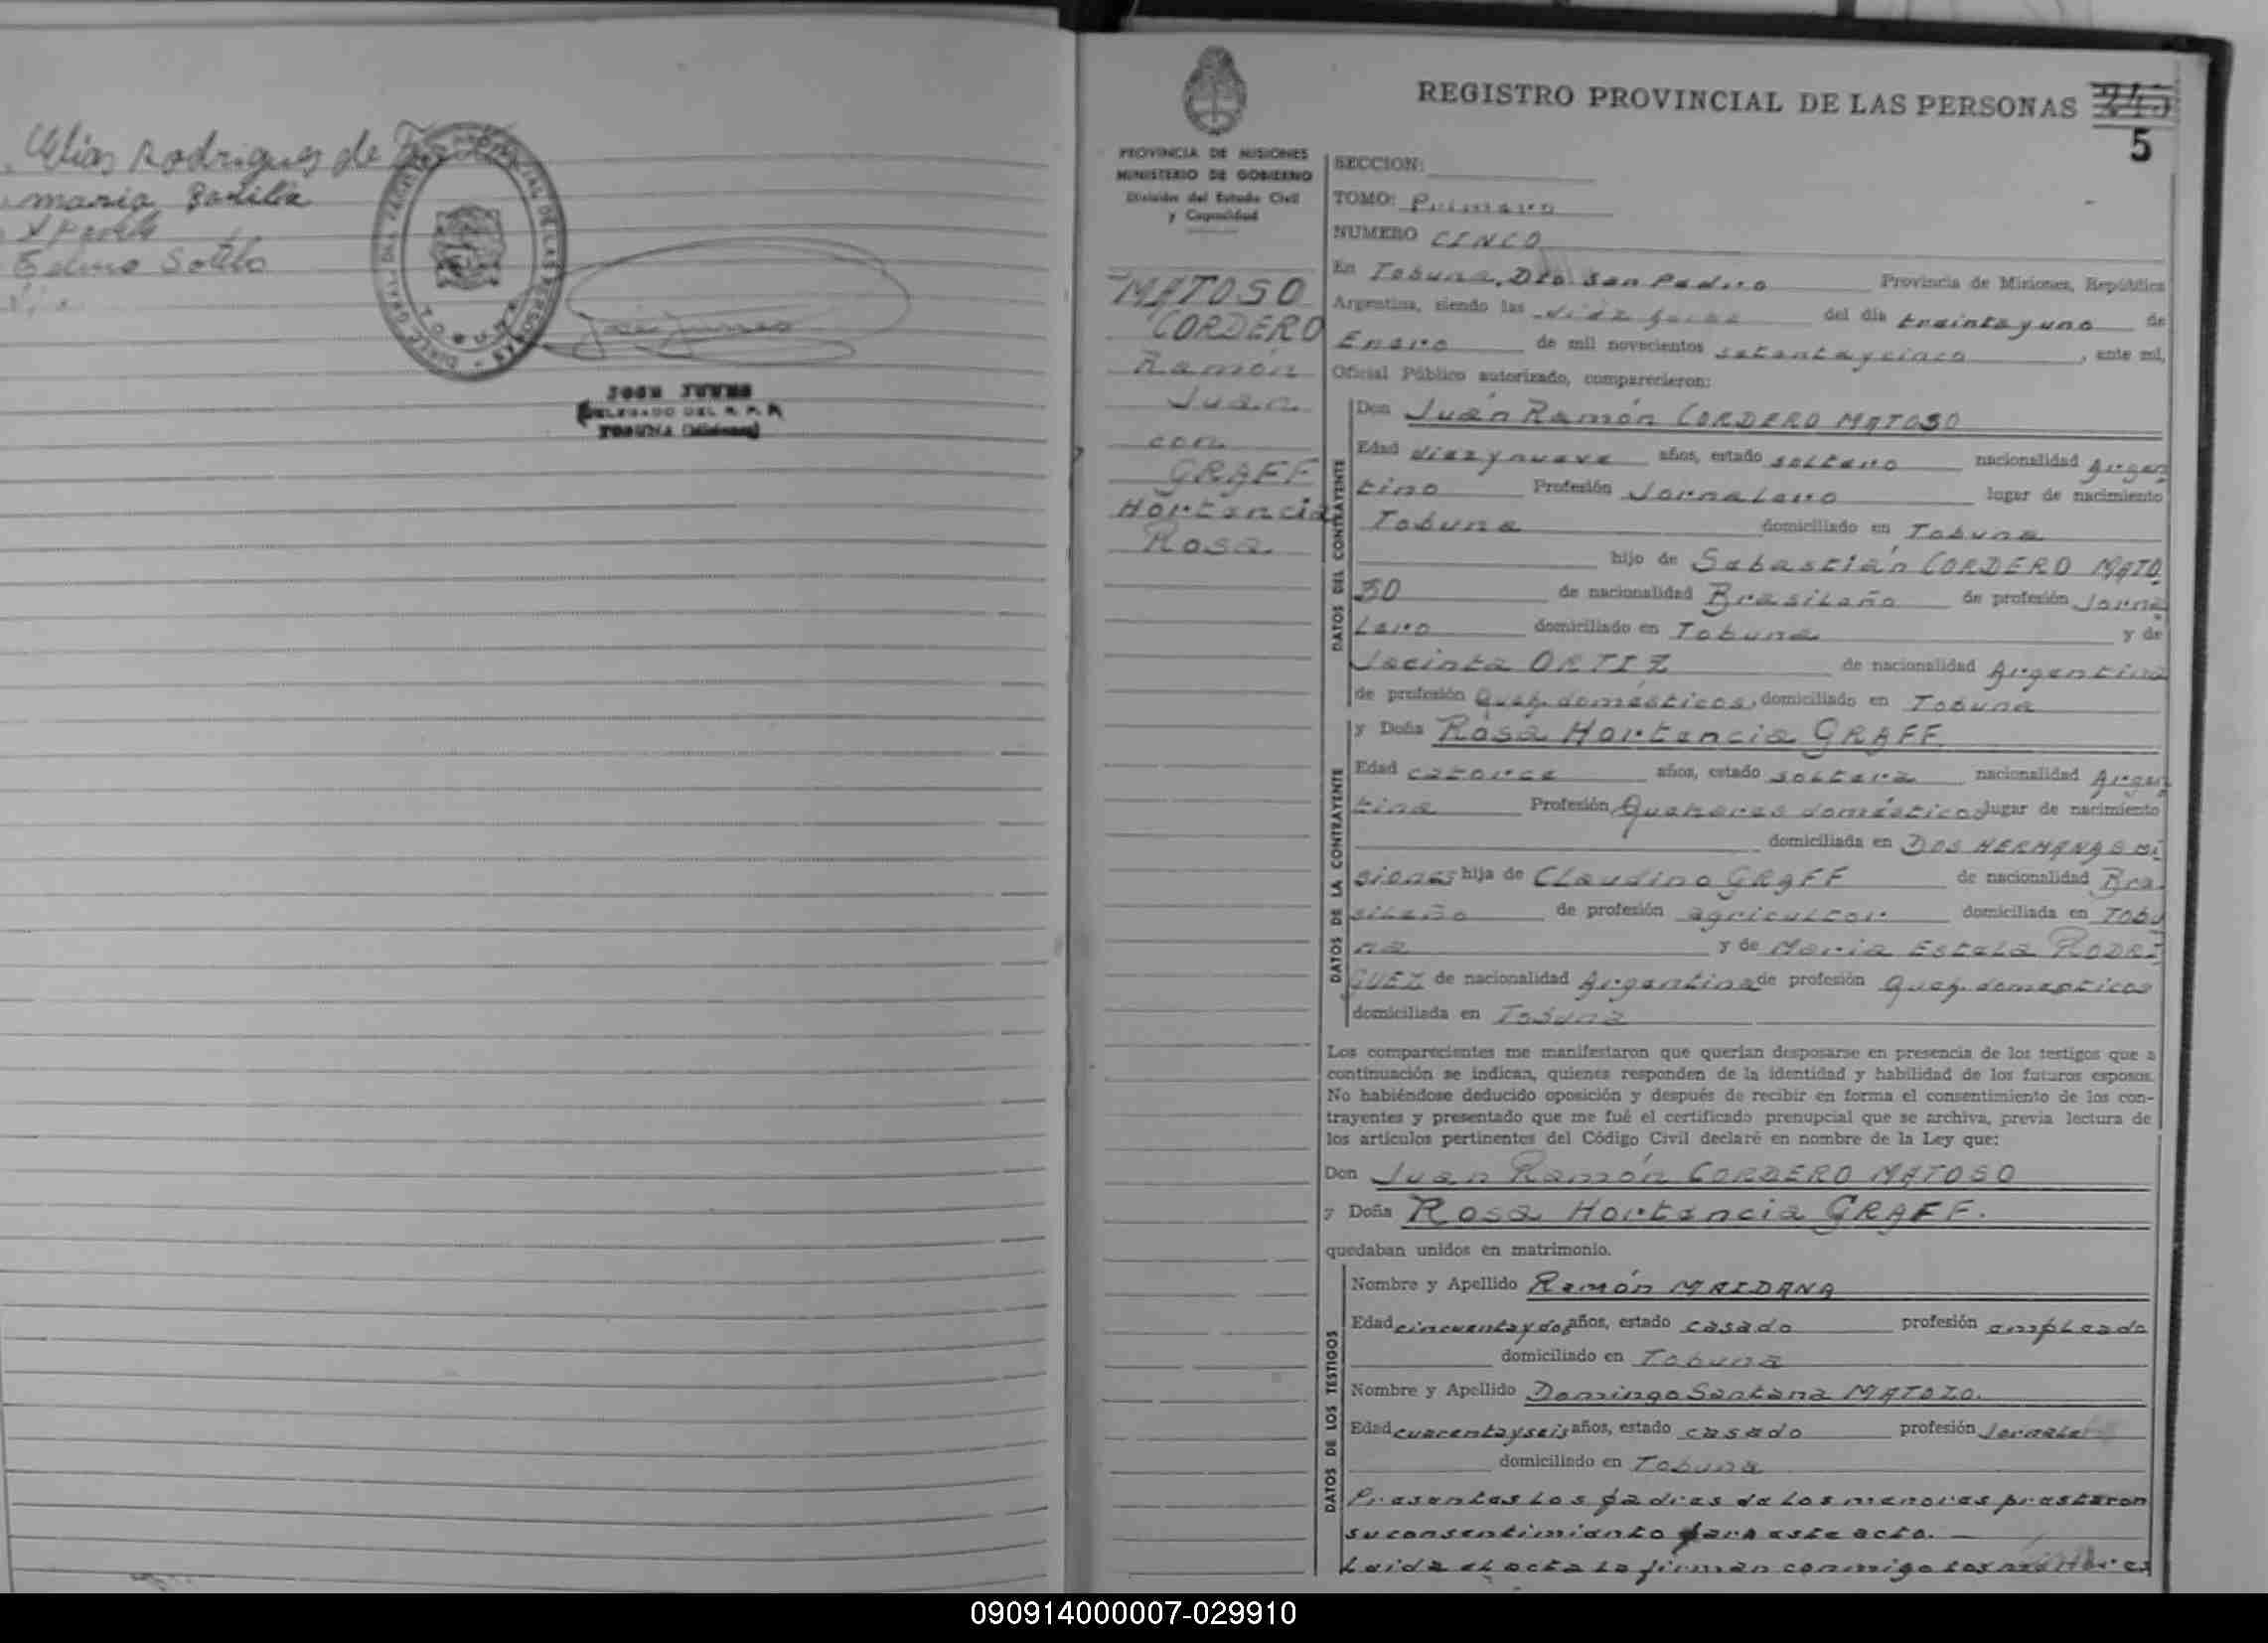 Rodrigues de
maria
Sotelo
JOSE JUNES
DELEGADO DEL R. P. P.
TOBUNA (Misiones)
REGISTRO PROVINCIAL DE LAS PERSONAS
5
PROVINCIA DE MISIONES
MINISTERIO DE GOBIERNO
División del Estado Civil
y Capacidad
SECCION:
TOMO: Primero
NUMERO CINCO
MATOSO
CORDERO
Ramón
Juan
con
GRAFF
Hortencia
Rosa
En Tobuna, Dto. San Pedro Provincia de Misiones, República
Argentina, siendo las diez horas del día treinta y uno de
Enero de mil novecientos setenta y cinco, ante mí,
Oficial Público autorizado, comparecieron:
DATOS DEL CONTRAYENTE
Don Juan Ramón CORDERO MATOSO
Edad diez y nueve años, estado soltero nacionalidad Argen
tino Profesión Jornalero lugar de nacimiento
Tobuna domiciliado en Tobuna
hijo de Sebastián CORDERO MATO
SO de nacionalidad Brasileño de profesión Jorna
lero domiciliado en Tobuna y de
Jacinta ORTIZ de nacionalidad Argentina
de profesión Queh. domésticos, domiciliado en Tobuna
DATOS DE LA CONTRAYENTE
y Doña Rosa Hortencia GRAFF
Edad catorce años, estado soltera nacionalidad Argen
tina Profesión Quehaceres domésticos lugar de nacimiento
domiciliada en DOS HERMANAS MI
siones hija de Claudino GRAFF de nacionalidad Bra
sileño de profesión agricultor domiciliada en TOBU
na y de Maria Estela RODRI
GUEZ de nacionalidad Argentina de profesión Queh. domesticos
domiciliada en Tobuna
Los comparecientes me manifestaron que querían desposarse en presencia de los testigos que a
continuación se indican, quienes responden de la identidad y habilidad de los futuros esposos.
No habiéndose deducido oposición y después de recibir en forma el consentimiento de los con-
trayentes y presentado que me fué el certificado prenupcial que se archiva, previa lectura de
los artículos pertinentes del Código Civil declaré en nombre de la Ley que:
Don Juan Ramón CORDERO MATOSO
y Doña Rosa Hortencia GRAFF.
quedaban unidos en matrimonio.
DATOS DE LOS TESTIGOS
Nombre y Apellido Ramón MALDANA
Edad cincuenta y dos años, estado casado profesión empleado
domiciliado en Tobuna
Nombre y Apellido Domingo Santana MATOZO.
Edad cuarenta y seis años, estado casado profesión Jornale
domiciliado en Tobuna
Presentes los padres de los menores prestaron
su consentimiento para este acto.
Leida el acta la firman conmigo los
090914000007-029910